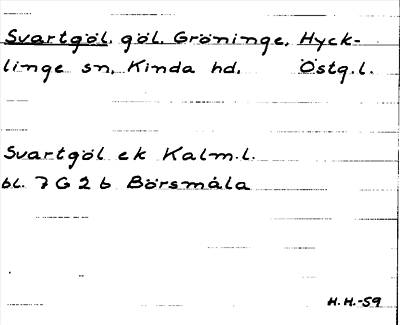 Svartgöl, göl, Gröninge, Hyck-
linge sn, Kinda hd, Östg.l.
Svartgöl ek Kalm.l.
bl. 7 G 2 b Börsmåla
H.H.-59